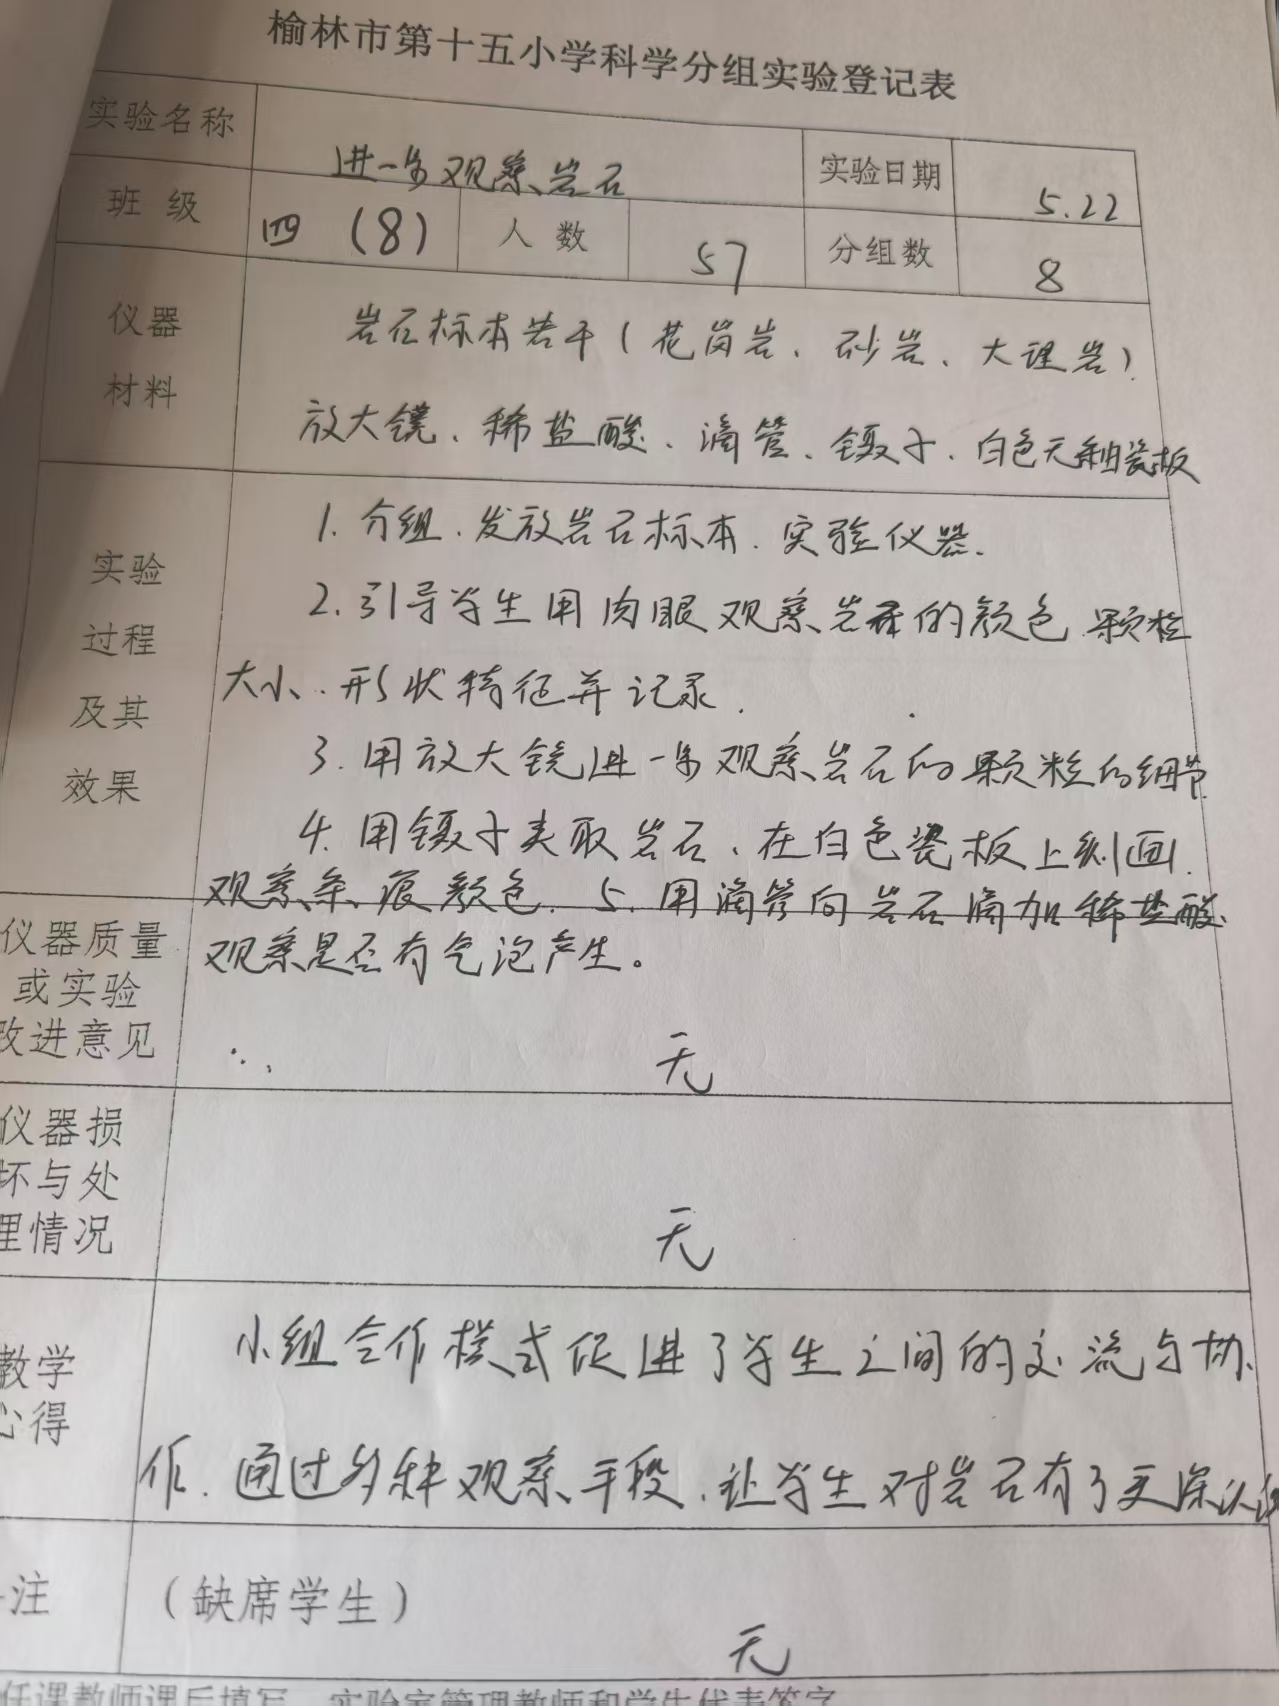 榆林市第十五小学科学分组实验登记表
实验名称 进一步观察岩石 实验日期 5.22
班级 四(8) 人数 57 分组数 8
仪器材料
岩石标本若干(花岗岩、砂岩、大理岩)
放大镜、稀盐酸、滴管、镊子、白色无釉瓷板
实验过程及其效果
1. 分组、发放岩石标本、实验仪器.
2. 引导学生用肉眼观察岩石的颜色 颗粒
大小、形状特征并记录.
3. 用放大镜进一步观察岩石的颗粒的细节
4. 用镊子夹取岩石、在白色瓷板上刻画.
观察条痕颜色. 5. 用滴管向岩石滴加稀盐酸.
观察是否有气泡产生。
仪器质量或实验改进意见
无
仪器损坏与处理情况
无
教学心得
小组合作模式促进了学生之间的交流与协
作.通过多种观察手段.让学生对岩石有了更深认识
注 (缺席学生)
无
任课教师课后填写 实验室管理教师和学生代表签字